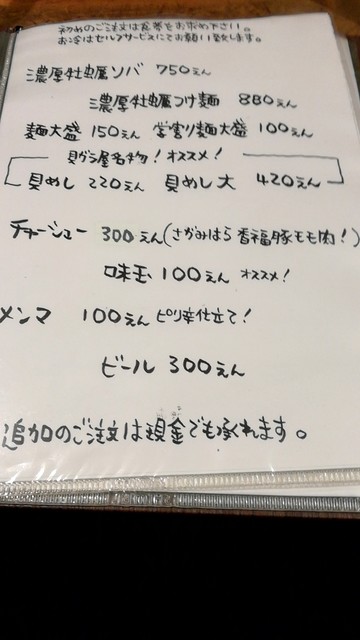 初めのご注文は食券をお求め下さい。
お冷はセルフサービスにてお願い致します。
濃厚牡蠣ソバ 750えん
濃厚牡蠣つけ麺 880えん
麺大盛 150えん 学割り麺大盛 100えん
貝がら屋名物!オススメ!
貝めし 220えん 貝めし大 420えん
チャーシュー 300えん(さがみはら香福豚モモ肉!)
味玉 100えん オススメ!
メンマ 100えん ピリ辛仕立て!
ビール 300えん
追加のご注文は現金でも承れます。